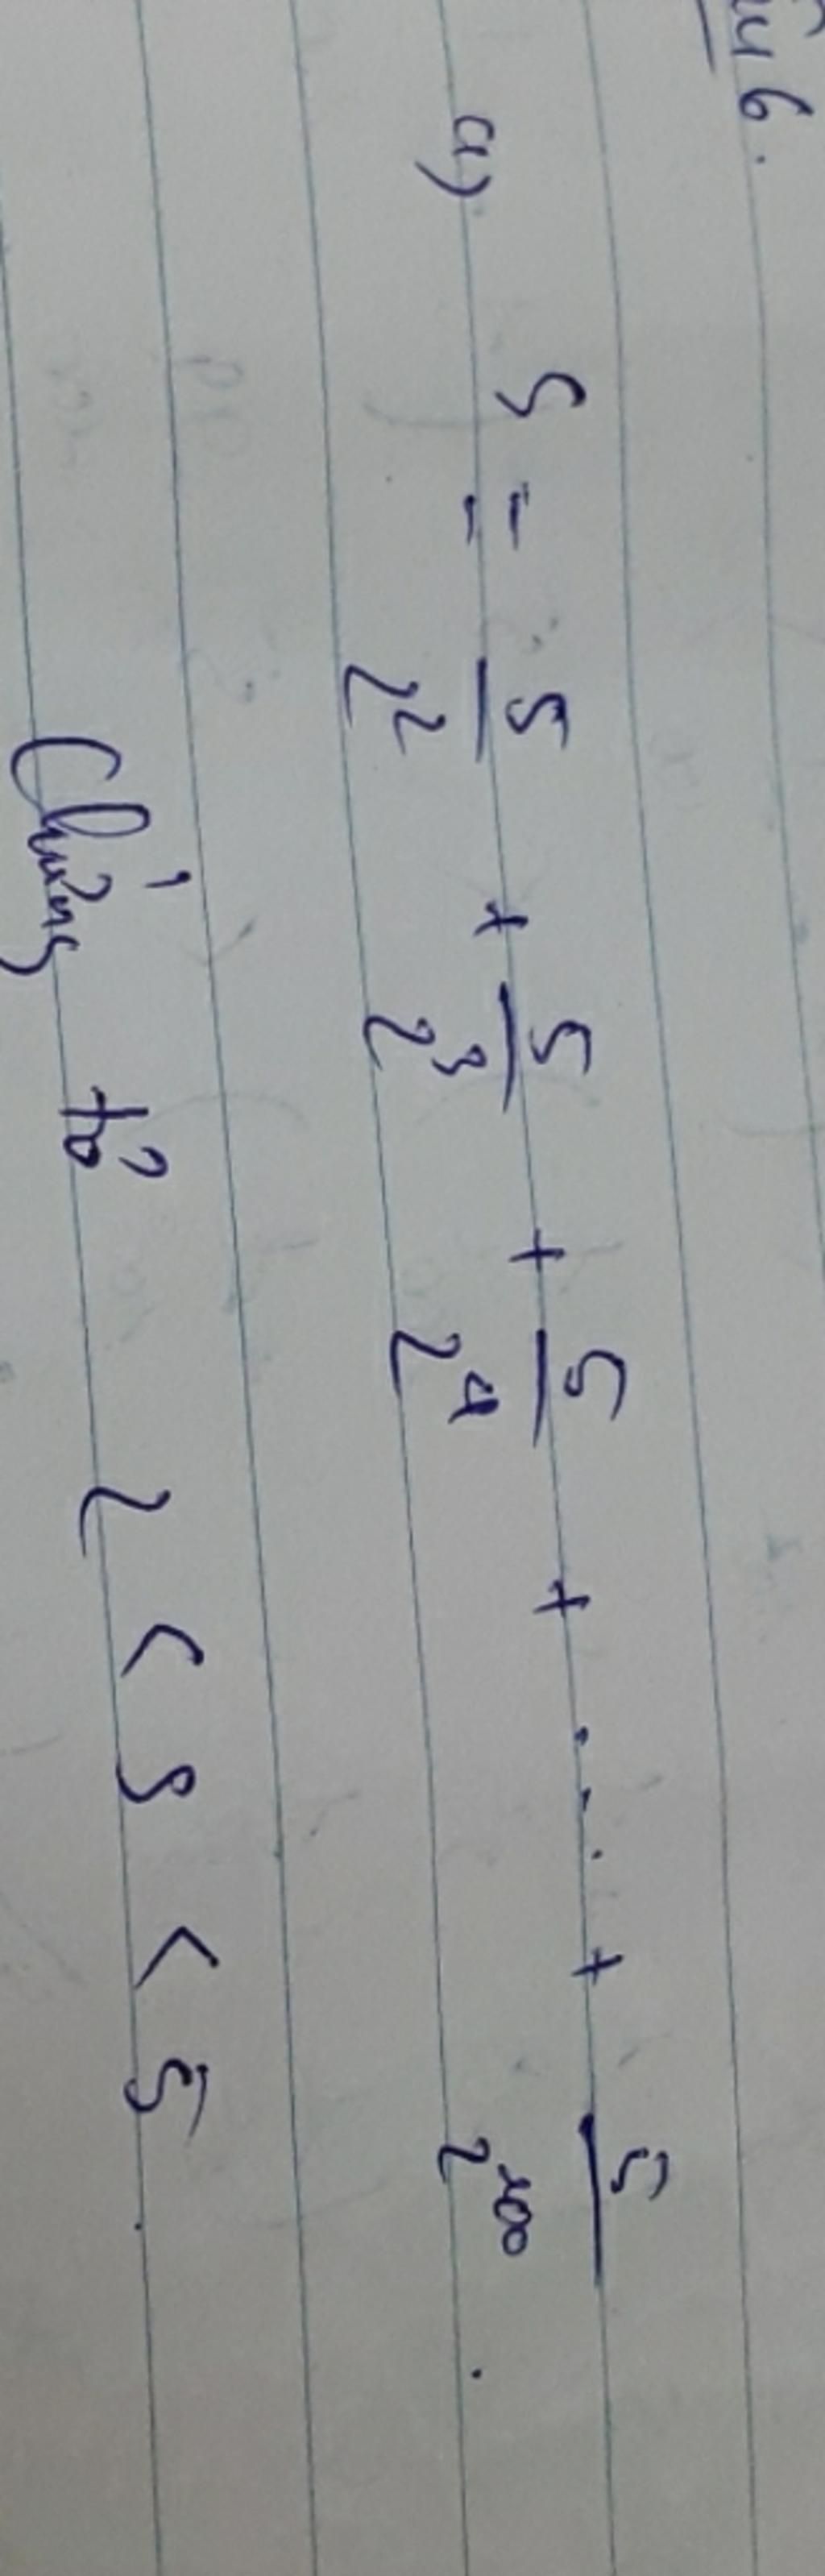 6.
a) S = 5/2² + 5/2³ + 5/2⁴ + .... + 5/2¹⁰⁰.
Chứng tỏ 2 < S < 5.